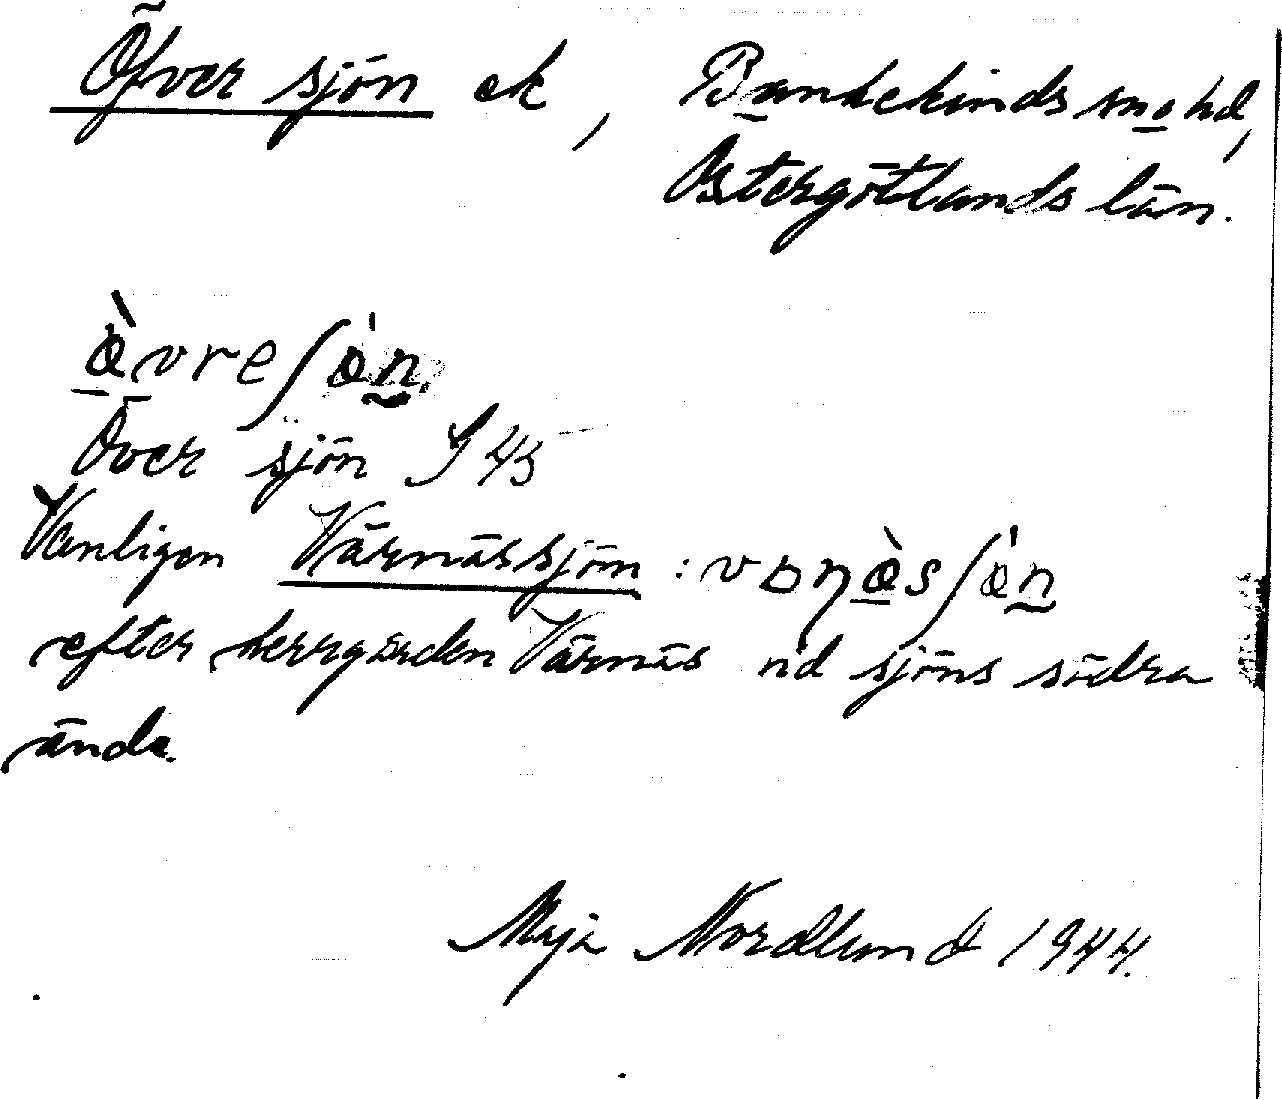 Öfver sjön ek, Bankekinds sn o hd,
Östergötlands län.
Över sjön J 45
Vanligen Värnässjön :
efter herrgården Värnäs vid sjöns södra
ända.
Maja Nordlund 1944.